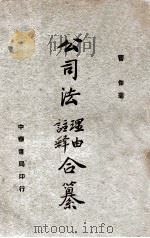 公司法理由註釋合纂
中華書局印行